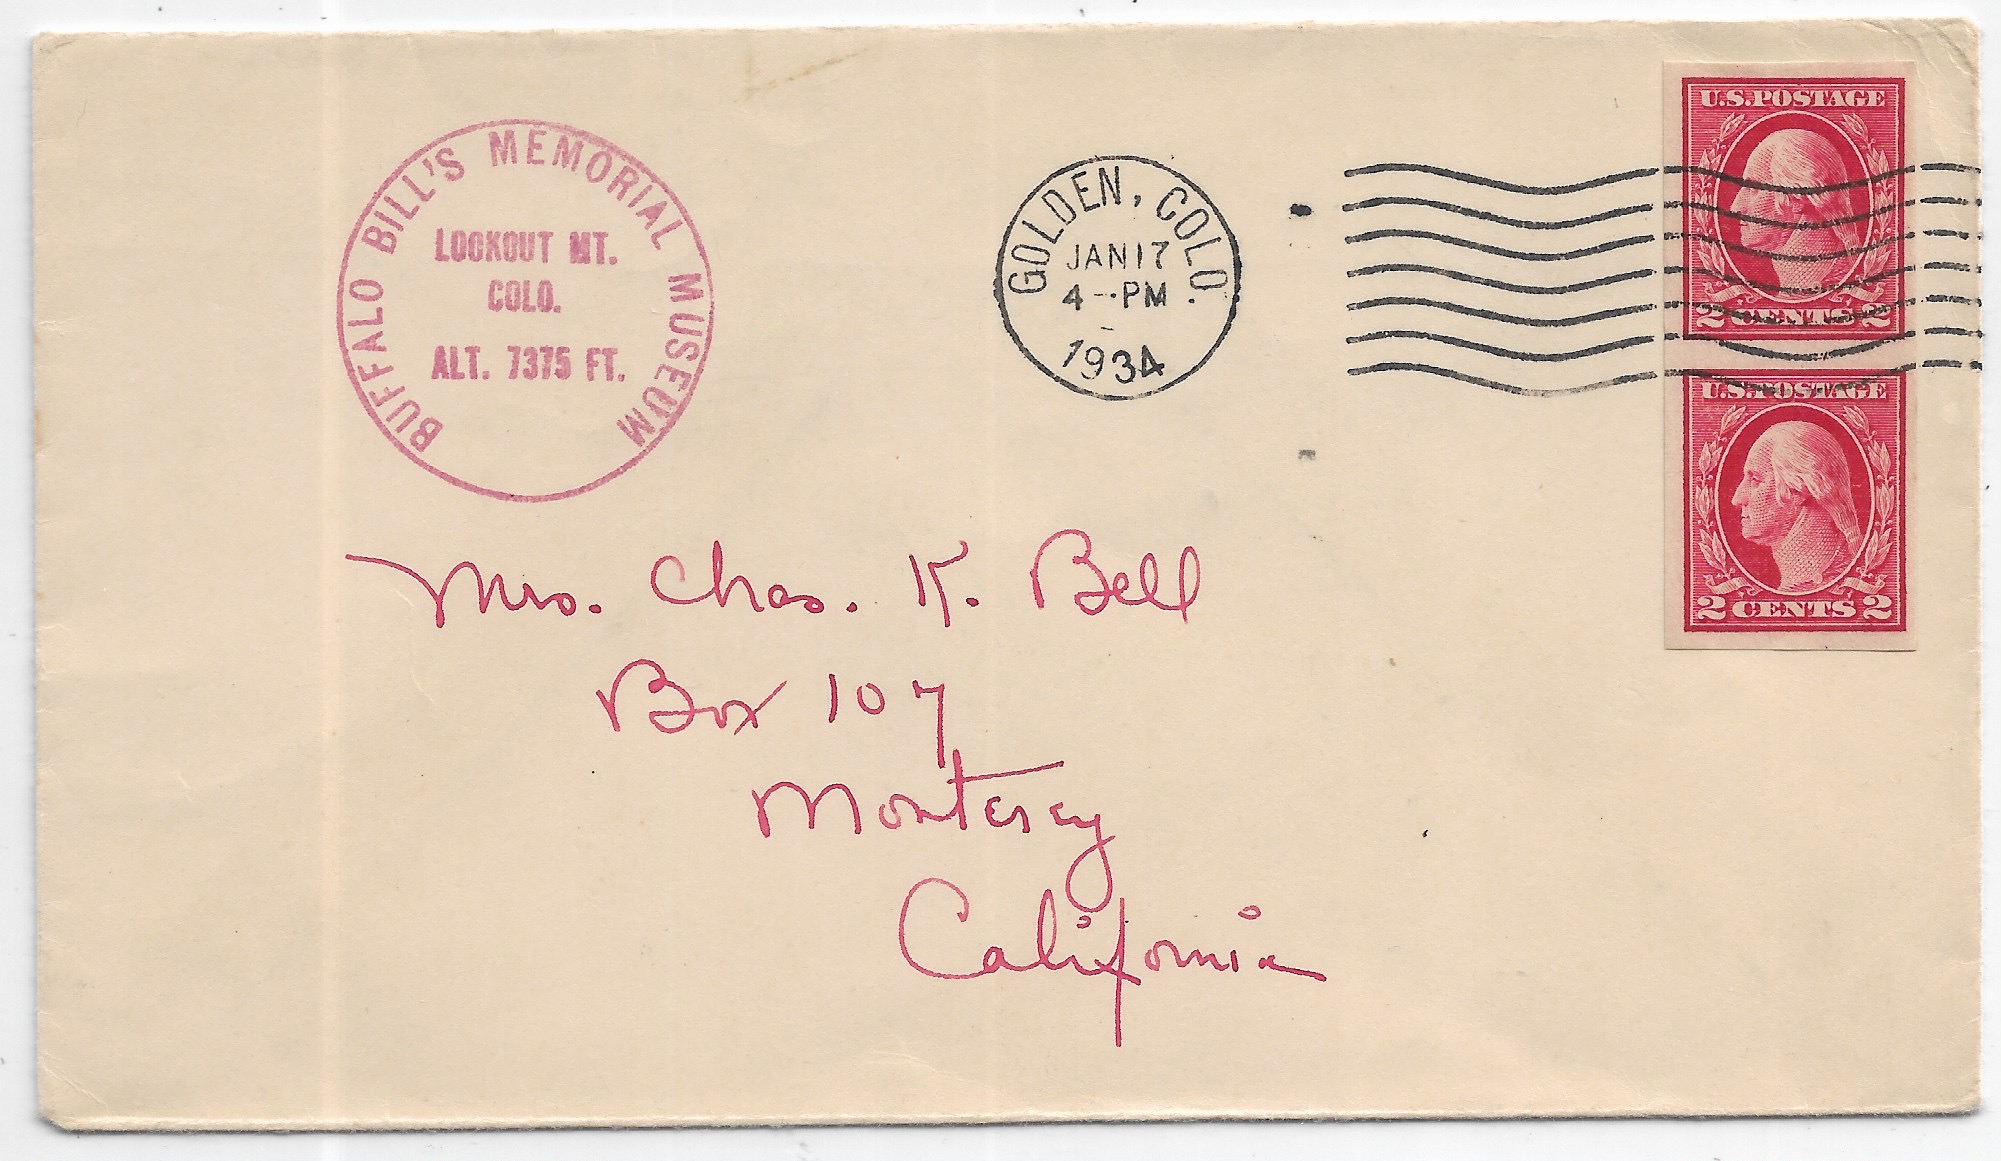 BUFFALO BILL'S MEMORIAL MUSEUM
LOOKOUT MT.
COLO.
ALT. 7375 FT.
GOLDEN, COLO.
JAN 17
4-PM
1934
U.S. POSTAGE
2 CENTS 2
U.S. POSTAGE
2 CENTS 2
Mrs. Chas. K. Bell
Box 107
Monterey
California